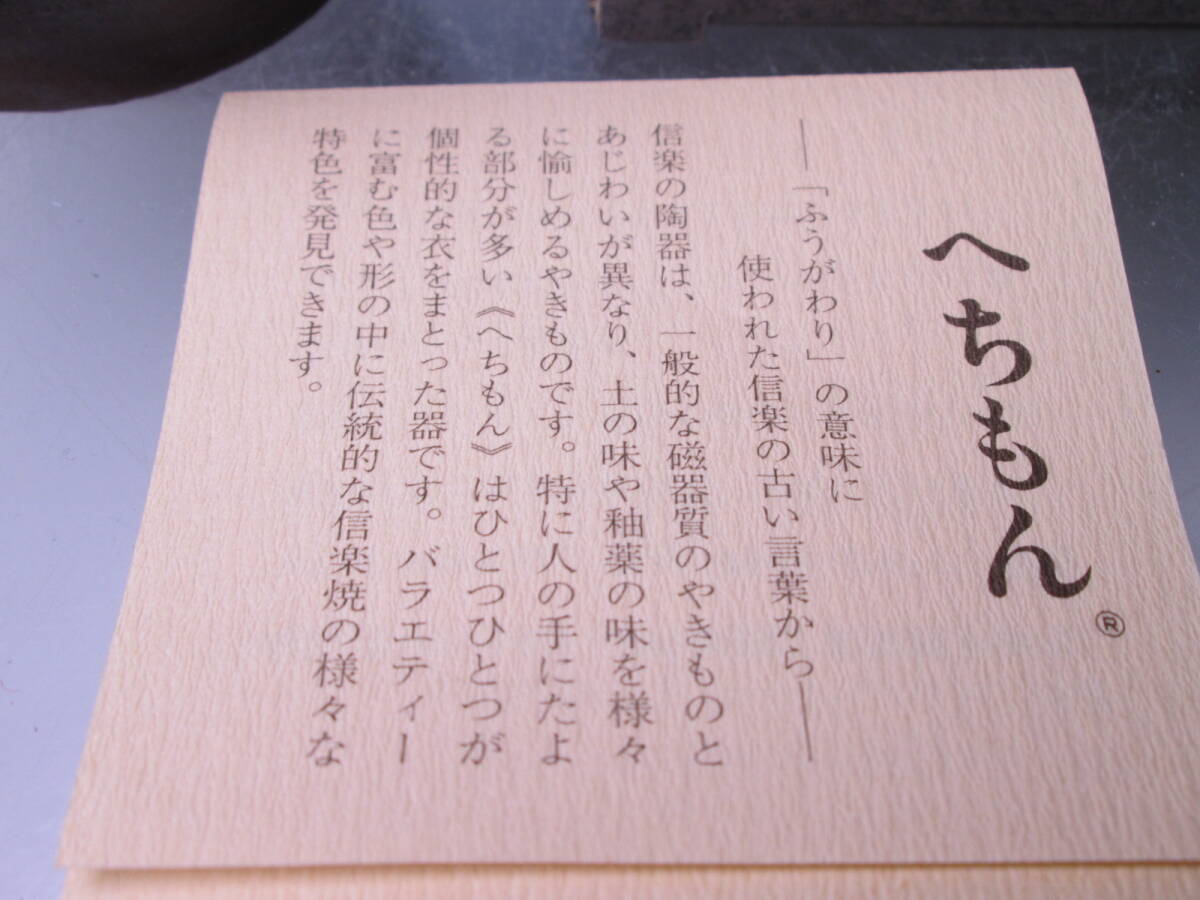 へちもん®
——「ふうがわり」の意味に
使われた信楽の古い言葉から——
信楽の陶器は、一般的な磁器質のやきものと
あじわいが異なり、土の味や釉薬の味を様々
に愉しめるやきものです。特に人の手にたよ
る部分が多い《へちもん》はひとつひとつが
個性的な衣をまとった器です。バラエティー
に富む色や形の中に伝統的な信楽焼の様々な
特色を発見できます。